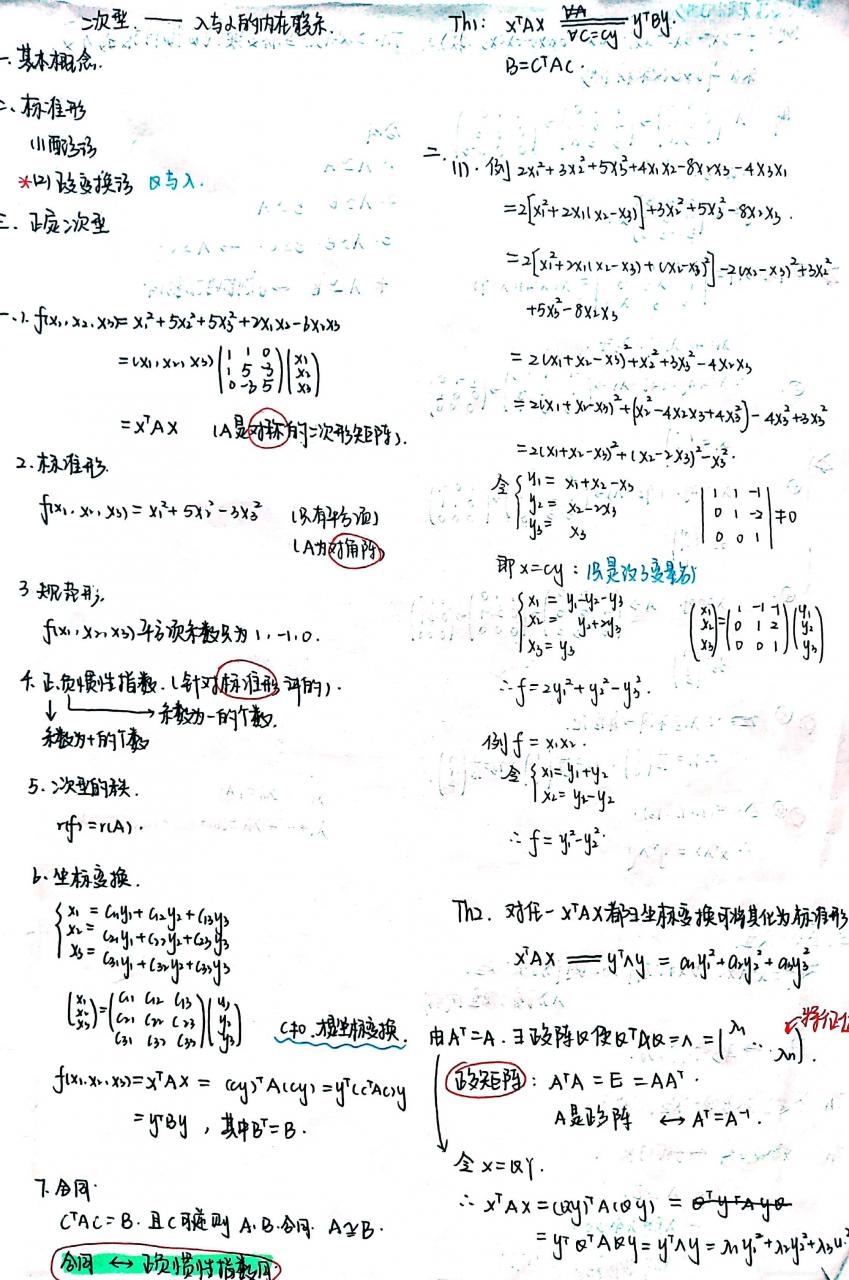 二次型 —— λ与α的内在联系.
一. 基本概念.
二、标准形
(1) 配方法
*(2) 正交变换法 Q与λ.
三、正定二次型
一、1. f(x₁,x₂,x₃)= x₁²+5x₂²+5x₃²+2x₁x₂-6x₂x₃
= (x₁,x₂,x₃) (1 1 0; 1 5 -3; 0 -3 5) (x₁; x₂; x₃)
= xᵀAx (A是对称的二次形矩阵).
2. 标准形.
f(x₁,x₂,x₃) = x₁²+5x₂²-3x₃² (只有平方项)
(A为对角阵)
3 规范形.
f(x₁,x₂,x₃) 平方项系数只为 1, -1, 0.
4. 正.负惯性指数. (针对标准形评的).
系数为-的个数.
系数为+的个数
5. 二次型的秩.
r(f) = r(A).
6. 坐标变换.
x₁ = c₁₁y₁+c₁₂y₂+c₁₃y₃
x₂ = c₂₁y₁+c₂₂y₂+c₂₃y₃
x₃ = c₃₁y₁+c₃₂y₂+c₃₃y₃
(x₁; x₂; x₃) = (c₁₁ c₁₂ c₁₃; c₂₁ c₂₂ c₂₃; c₃₁ c₃₂ c₃₃) (y₁; y₂; y₃) C≠0. 坐标变换.
f(x₁,x₂,x₃)=xᵀAx = (cy)ᵀA(cy) = yᵀ(cᵀAc)y
= yᵀBy , 其中Bᵀ=B.
7. 合同.
CᵀAC=B. 且C可逆则 A.B.合同. A≃B.
合同 ↔ 正负惯性指数同
Th1: xᵀAx ═ yᵀBy.
∀A
∀C=cy
B=CᵀAC.
二.
(1). 例 2x₁²+3x₂²+5x₃²+4x₁x₂-8x₂x₃-4x₃x₁
=2[x₁²+2x₁(x₂-x₃)]+3x₂²+5x₃²-8x₂x₃.
=2[x₁²+2x₁(x₂-x₃)+(x₂-x₃)²]-2(x₂-x₃)²+3x₂²
+5x₃²-8x₂x₃
= 2(x₁+x₂-x₃)²+x₂²+3x₃²-4x₂x₃
= 2(x₁+x₂-x₃)²+(x₂²-4x₂x₃+4x₃²)-4x₃²+3x₃²
=2(x₁+x₂-x₃)²+(x₂-2x₃)²-x₃².
令 y₁= x₁+x₂-x₃
y₂= x₂-2x₃
y₃= x₃
|1 1 -1; 0 1 -2; 0 0 1| ≠0
即 x=cy : (只是改了变量名)
x₁= y₁-y₂-y₃
x₂= y₂+2y₃
x₃= y₃
(x₁; x₂; x₃)=(1 -1 -1; 0 1 2; 0 0 1)(y₁; y₂; y₃)
∴ f=2y₁²+y₂²-y₃².
例 f = x₁x₂.
令 x₁=y₁+y₂
x₂= y₁-y₂
∴ f=y₁²-y₂².
Th2. 对任一xᵀAx都∃坐标变换可将其化为标准形
xᵀAx ═ yᵀΛy = a₁y₁²+a₂y₂²+a₃y₃²
由Aᵀ=A. ∃正交阵Q使QᵀAQ=Λ=(λ₁ ⋱ λn). 特征值
正交矩阵: AᵀA = E = AAᵀ.
A是正交阵 ↔ Aᵀ=A⁻¹.
令 x=QY.
∴ xᵀAx=(Qy)ᵀA(Qy) = QᵀyᵀAyQ
= yᵀQᵀAQy = yᵀΛy = λ₁y₁²+λ₂y₂²+λ₃y₃²